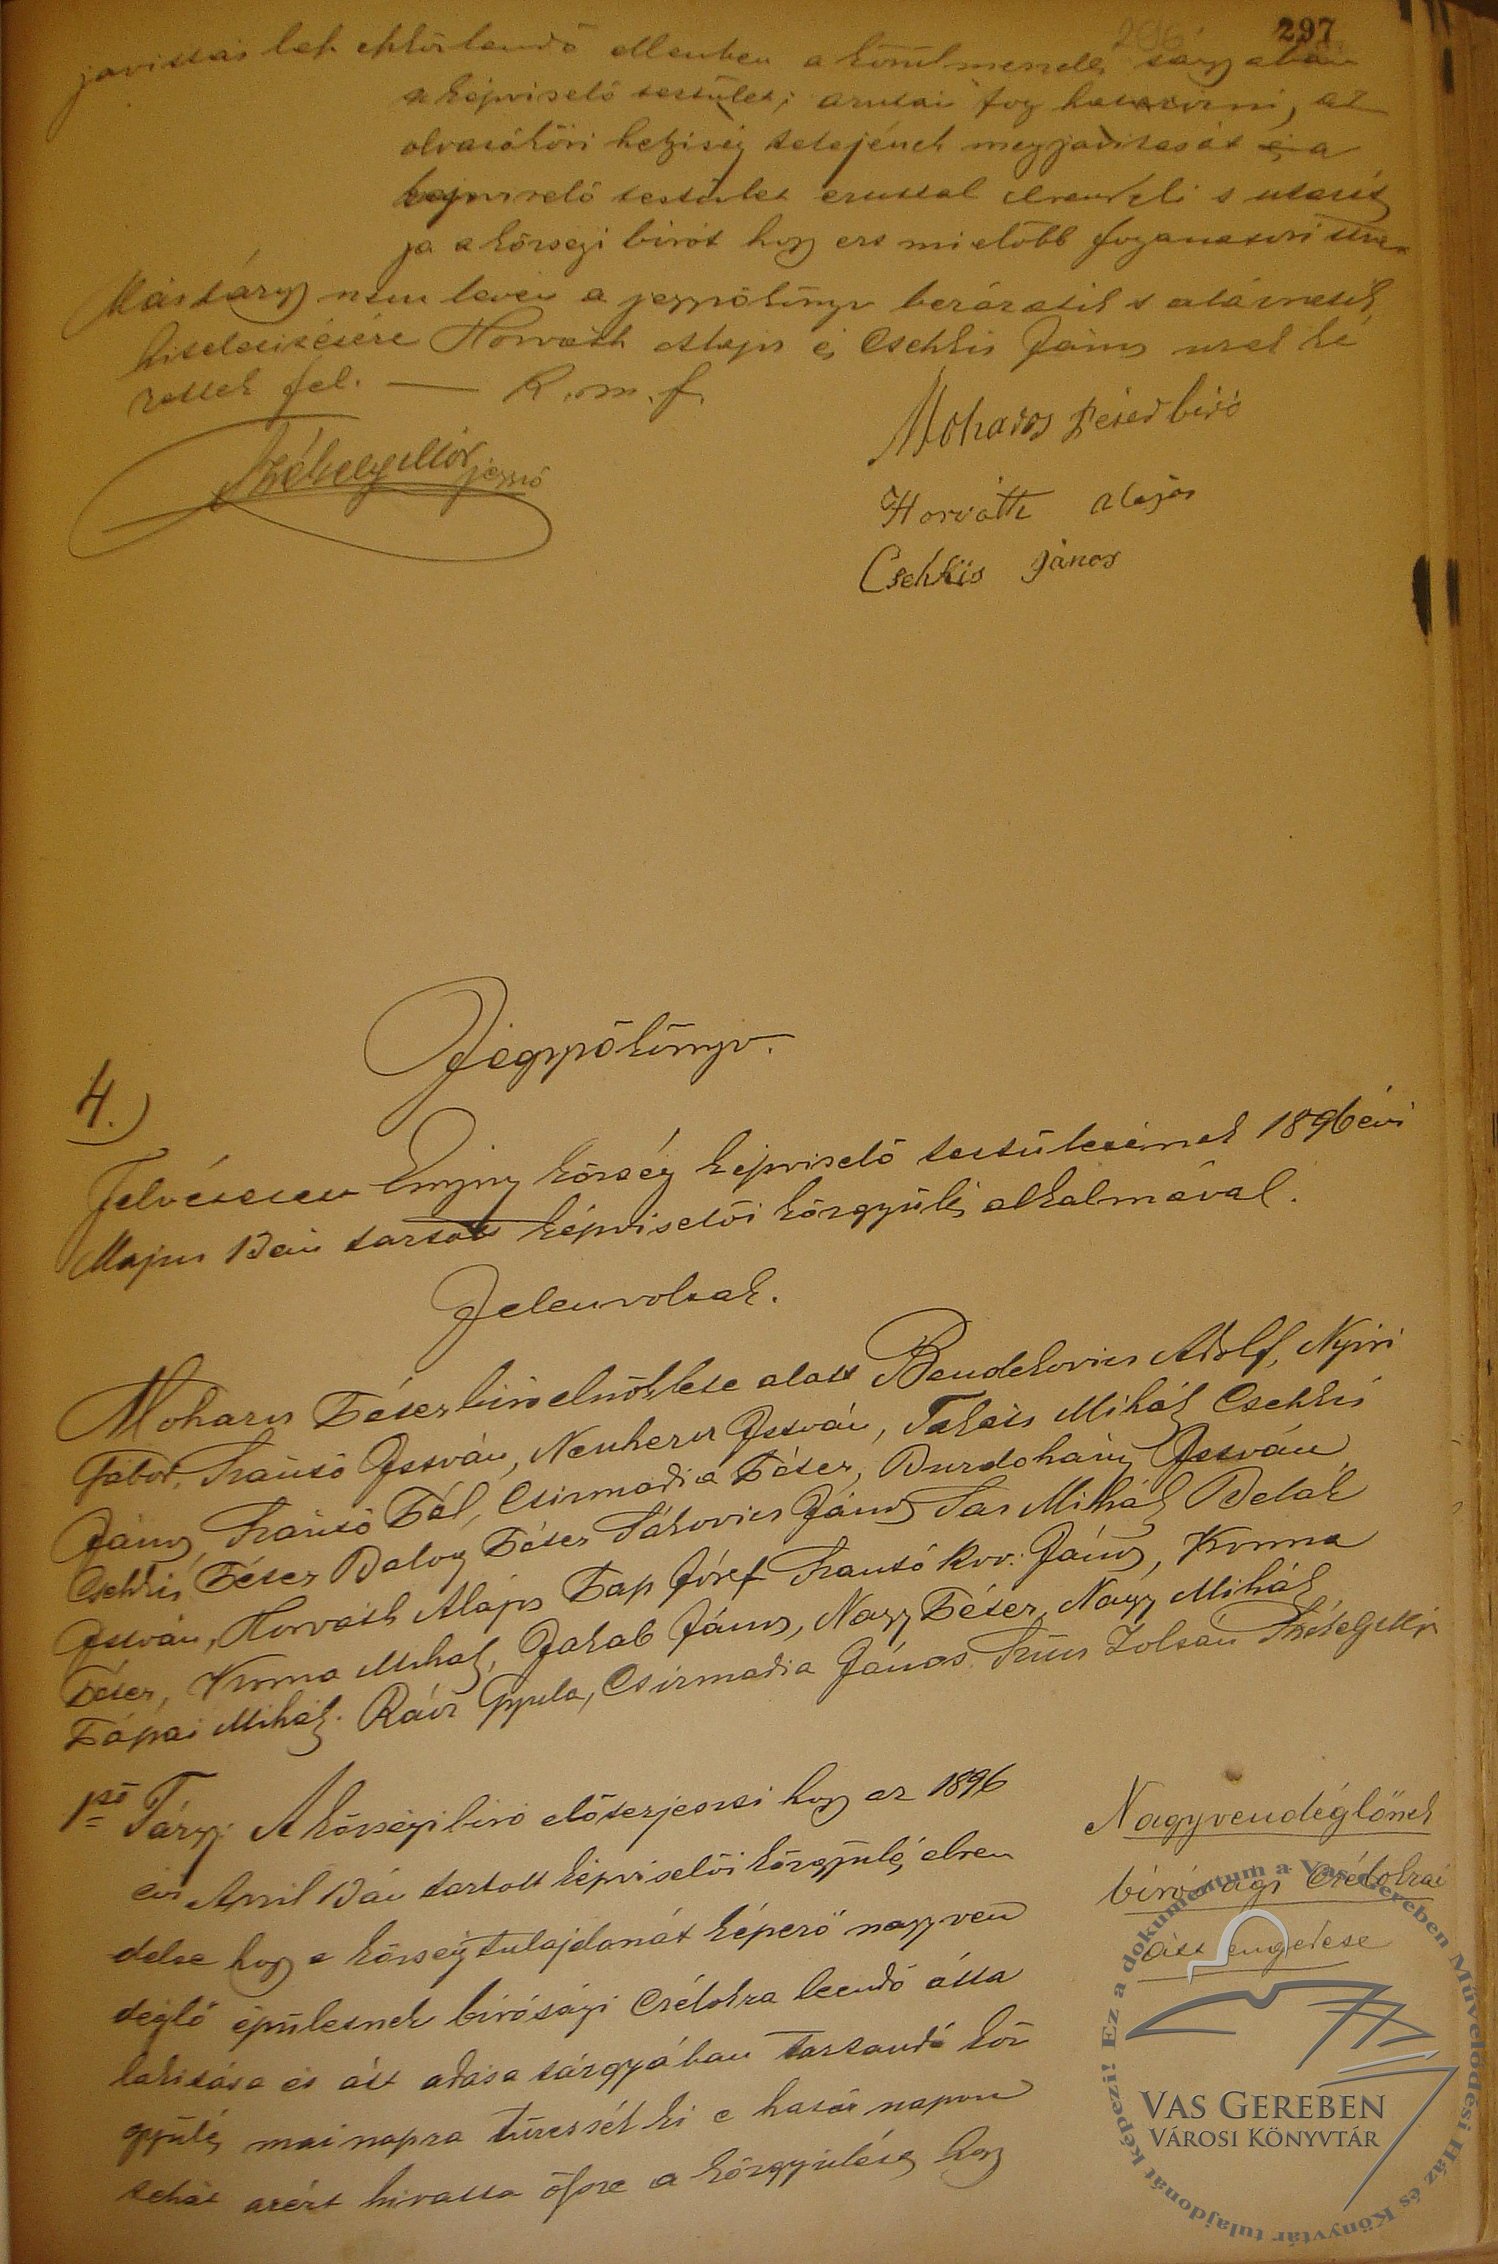 297
javittás lett eszközlendő ellenben a körülmények tárgyában
a képviselő testület; azután fog határozni, az
olvasóköri helyiség tetejének megjavitását és a
képviselő testület ezuttal elrendeli s utasít
ja a községi birót hogy ezt mielőbb foganatosittassa
Más tárgy nem lévén a jegyzőkönyv bezáratik s aláirások
hitelesitésére Horváth Alajos és Csekkis János urak ké
rettek fel. — K. m. f.
Moharos Péter biró
Székely Mór jegyző
Horváth Alajos
Csekkis János
Jegyzőkönyv.
4.)
Felvétetett Enying község képviselő testületének 1896 évi
Majus 1 Dén tartott képviselői közgyűlés alkalmával.
Jelenvoltak.
Moharos Péter biró elnöklete alatt Bendekovics Adolf, Nyiri
Gábor, Szántó István, Neuherz István, Takáts Mihály Csekkis
János, Szántó Pál, Csizmadia Péter, Burdohány István
Csekkis Péter Balog Péter Sákovics János Sas Mihály Belák
István, Horváth Alajos Pap József Szántó Kov. János, Konna
Péter, Konna Mihály, Jakab János, Nagy Péter, Nagy Mihály
Pápai Mihály. Rácz Gyula, Csizmadia János. Szücs Zoltán Székely Mór
1ső Tárgy. A községi biró előterjeszti hogy az 1896
évi April 1 Dén tartott képviselői közgyülés elren
delte hogy a község tulajdonát képező nagyven
déglő épületnek birósági czélokra leendő átta
lakitása és átt adása tárgyában tartandó köz
gyülés mai napra tüzessék ki e határ napon
tehát azért hivatta össze a közgyülést hogy
Nagyvendéglőnek
birósági czélokrai
átt engedése
Ez a dokumentum a Vas Gereben Művelődési Ház és Könyvtár tulajdonát képezi!
VAS GEREBEN
VÁROSI KÖNYVTÁR